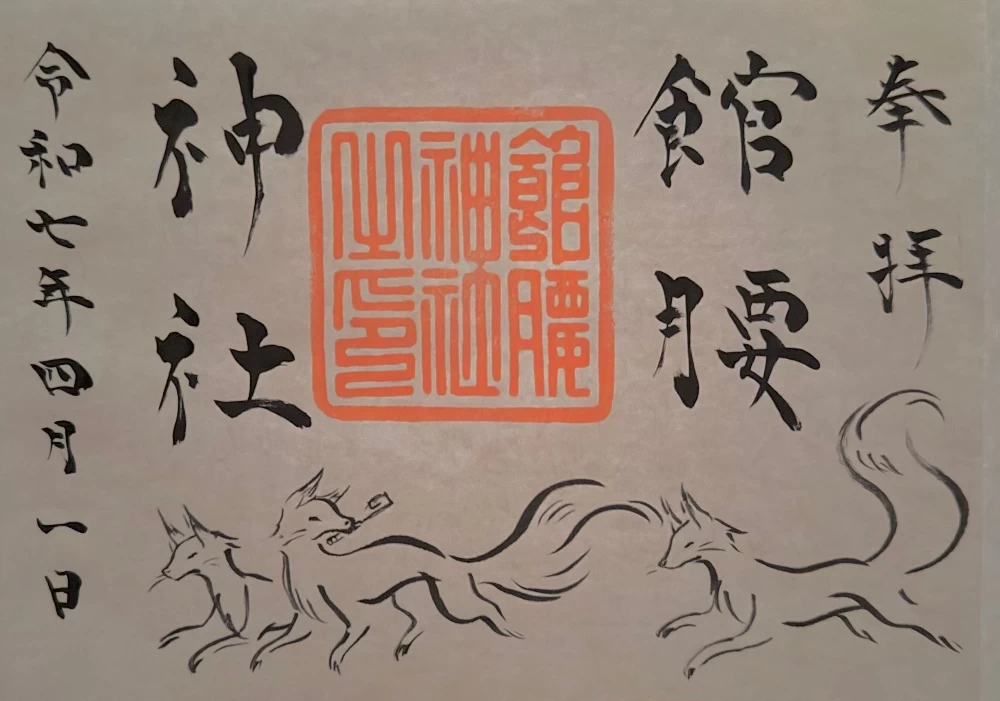 奉拝
館腰
館腰
神社
之印
神社
令和七年四月一日